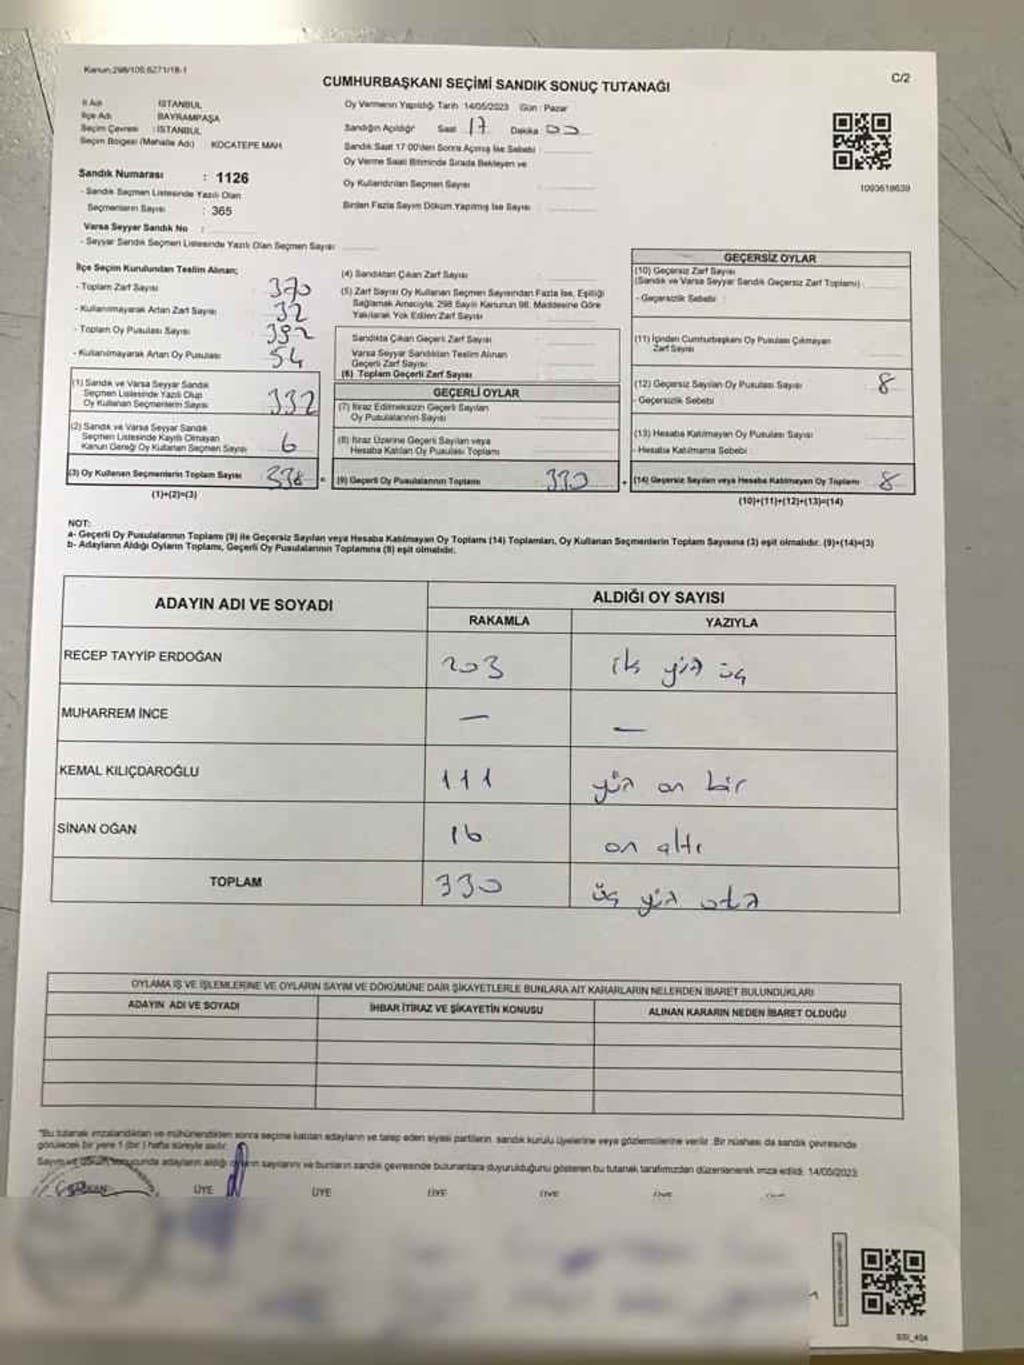 Kanun:298/105,6271/18-1
C/2
CUMHURBAŞKANI SEÇİMİ SANDIK SONUÇ TUTANAĞI
İl Adı : İSTANBUL
İlçe Adı : BAYRAMPAŞA
Seçim Çevresi : İSTANBUL
Seçim Bölgesi (Mahalle Adı) : KOCATEPE MAH
Sandık Numarası : 1126
- Sandık Seçmen Listesinde Yazılı Olan
Seçmenlerin Sayısı : 365
Varsa Seyyar Sandık No :
- Seyyar Sandık Seçmen Listesinde Yazılı Olan Seçmen Sayısı
Oy Vermenin Yapıldığı Tarih :14/05/2023 Gün : Pazar
Sandığın Açıldığı Saat 17 Dakika 00
Sandık Saat 17:00'den Sonra Açılmış İse Sebebi :
Oy Verme Saati Bitiminde Sırada Bekleyen ve
Oy Kullandırılan Seçmen Sayısı
Birden Fazla Sayım Döküm Yapılmış İse Sayısı :
1093618639
İlçe Seçim Kurulundan Teslim Alınan;
- Toplam Zarf Sayısı 370
- Kullanılmayarak Artan Zarf Sayısı 32
- Toplam Oy Pusulası Sayısı 392
- Kullanılmayarak Artan Oy Pusulası 54
(1) Sandık ve Varsa Seyyar Sandık
Seçmen Listesinde Yazılı Olup
Oy Kullanan Seçmenlerin Sayısı 332
(2) Sandık ve Varsa Seyyar Sandık
Seçmen Listesinde Kayıtlı Olmayan
Kanun Gereği Oy Kullanan Seçmen Sayısı 6
(3) Oy Kullanan Seçmenlerin Toplam Sayısı 338 =
(1)+(2)=(3)
(4) Sandıktan Çıkan Zarf Sayısı
(5) Zarf Sayısı Oy Kullanan Seçmen Sayısından Fazla İse, Eşitliği
Sağlamak Amacıyla, 298 Sayılı Kanunun 98. Maddesine Göre
Yakılarak Yok Edilen Zarf Sayısı
Sandıkta Çıkan Geçerli Zarf Sayısı
Varsa Seyyar Sandıktan Teslim Alınan
Geçerli Zarf Sayısı
(6) Toplam Geçerli Zarf Sayısı
GEÇERLİ OYLAR
(7) İtiraz Edilmeksizin Geçerli Sayılan
Oy Pusulalarının Sayısı
(8) İtiraz Üzerine Geçerli Sayılan veya
Hesaba Katılan Oy Pusulası Toplamı
(9) Geçerli Oy Pusulalarının Toplamı 330 +
GEÇERSİZ OYLAR
(10) Geçersiz Zarf Sayısı
(Sandık ve Varsa Seyyar Sandık Geçersiz Zarf Toplamı)
- Geçersizlik Sebebi :
(11) İçinden Cumhurbaşkanı Oy Pusulası Çıkmayan
Zarf Sayısı
(12) Geçersiz Sayılan Oy Pusulası Sayısı 8
- Geçersizlik Sebebi
(13) Hesaba Katılmayan Oy Pusulası Sayısı
- Hesaba Katılmama Sebebi
(14) Geçersiz Sayılan veya Hesaba Katılmayan Oy Toplamı 8
(10)+(11)+(12)+(13)=(14)
NOT:
a- Geçerli Oy Pusulalarının Toplamı (9) ile Geçersiz Sayılan veya Hesaba Katılmayan Oy Toplamı (14) Toplamları, Oy Kullanan Seçmenlerin Toplam Sayısına (3) eşit olmalıdır. (9)+(14)=(3)
b- Adayların Aldığı Oyların Toplamı, Geçerli Oy Pusulalarının Toplamına (9) eşit olmalıdır.
ADAYIN ADI VE SOYADI
ALDIĞI OY SAYISI
RAKAMLA YAZIYLA
RECEP TAYYİP ERDOĞAN 203 iki yüz üç
MUHARREM İNCE — —
KEMAL KILIÇDAROĞLU 111 yüz on bir
SİNAN OĞAN 16 on altı
TOPLAM 330 üç yüz otuz
OYLAMA İŞ VE İŞLEMLERİNE VE OYLARIN SAYIM VE DÖKÜMÜNE DAİR ŞİKAYETLERLE BUNLARA AİT KARARLARIN NELERDEN İBARET BULUNDUKLARI
ADAYIN ADI VE SOYADI İHBAR İTİRAZ VE ŞİKAYETİN KONUSU ALINAN KARARIN NEDEN İBARET OLDUĞU
"Bu tutanak imzalandıktan ve mühürlendikten sonra seçime katılan adayların ve talep eden siyasi partilerin, sandık kurulu üyelerine veya gözlemcilerine verilir. Bir nüshası da sandık çevresinde
görülecek bir yere 1 (bir) hafta süreyle asılır.
Sayım ve döküm sonucunda adayların aldığı oyların sayılarını ve bunların sandık çevresinde bulunanlara duyurulduğunu gösteren bu tutanak tarafımızdan düzenlenerek imza edildi. 14/05/2023
BAŞKAN ÜYE ÜYE ÜYE ÜYE ÜYE ÜYE